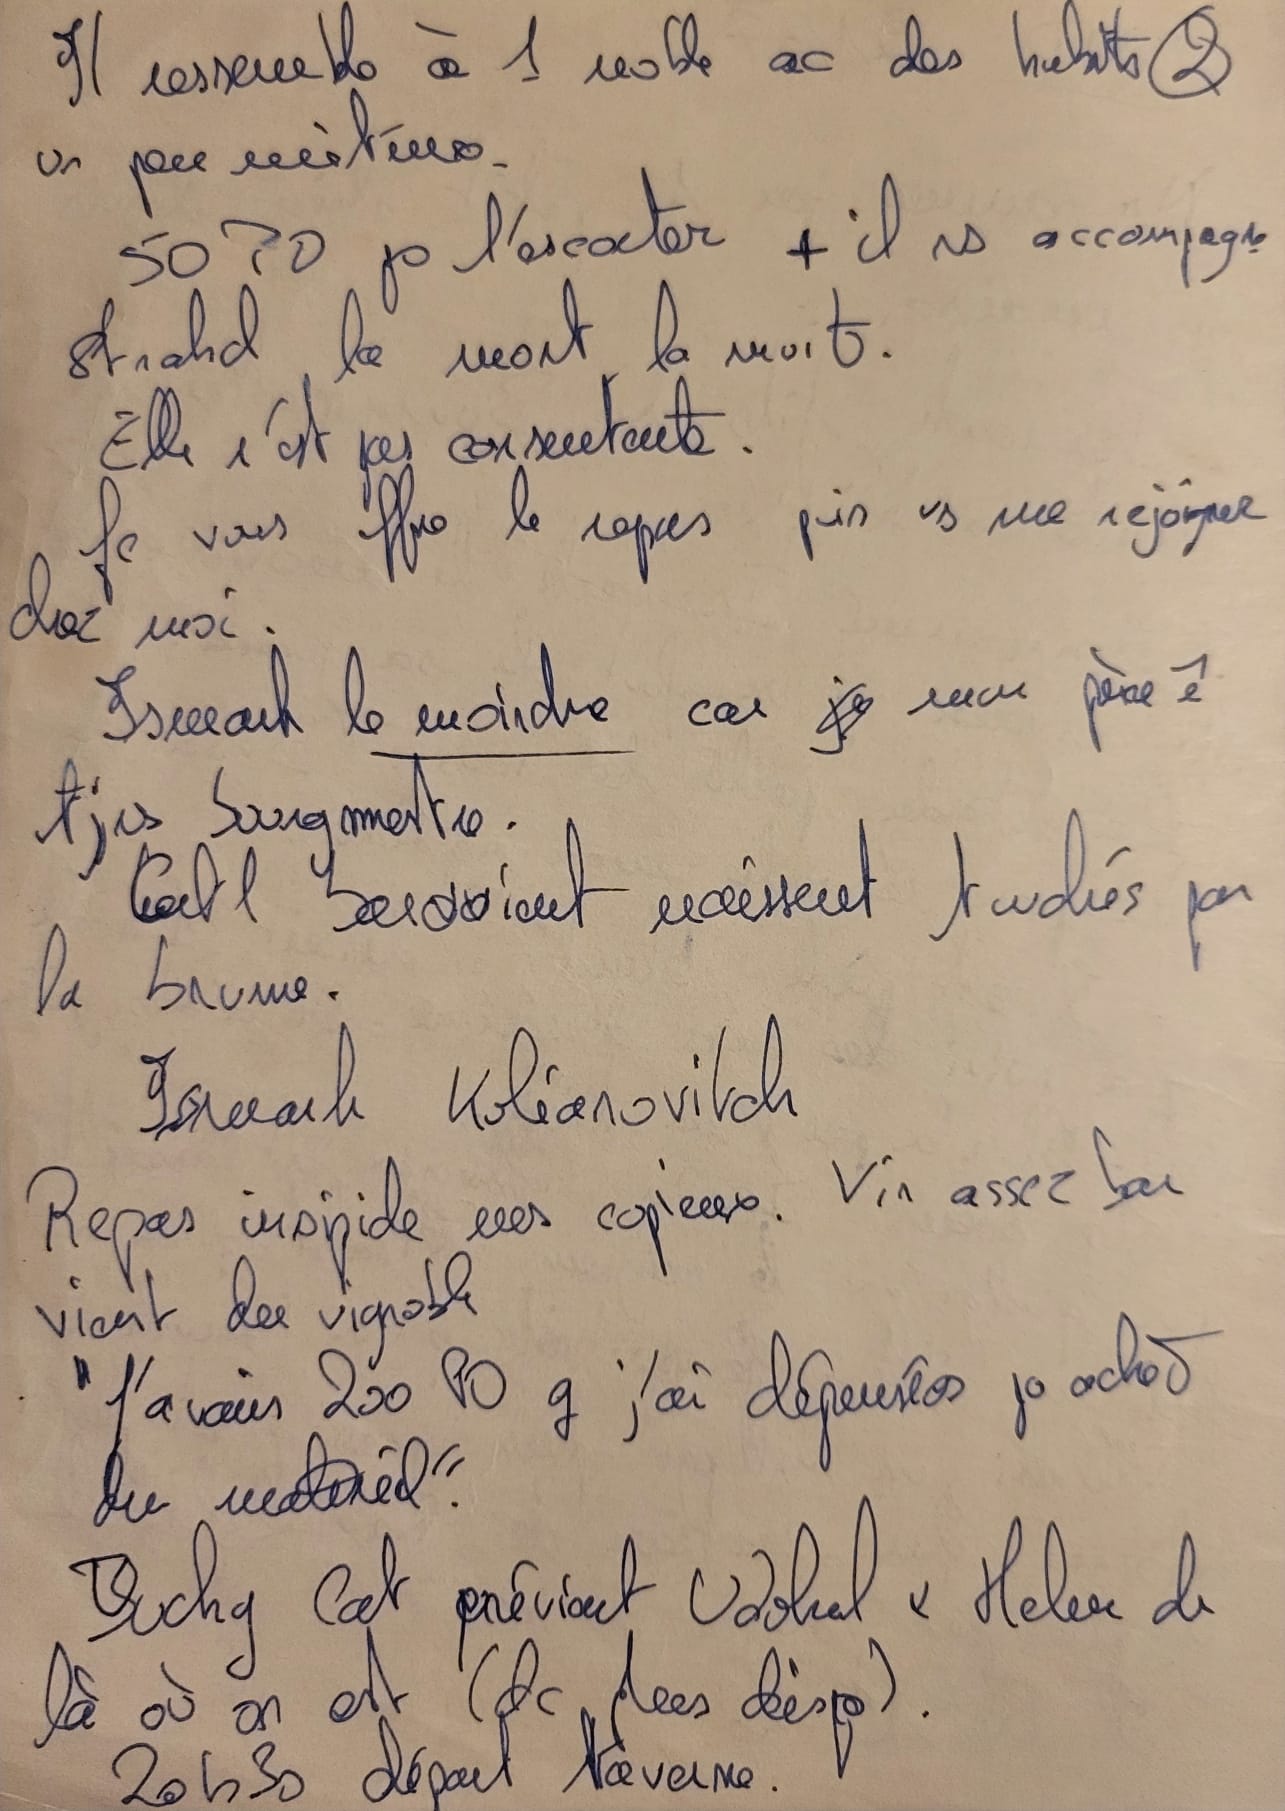 Il ressemble à 1 noble ac des habits ②
un peu miteux.
50 PO po l'escorter + il ns accompagne
Strahd la mort, la nuit.
Elle n'est pas consentante.
Je vous offre le repas puis vs me rejoignez
chez moi.
Ismark le moindre car mon père ê
tjrs bourgmestre.
Cat l barovient naissent par
la brume.
Ismark Kolianovitch
Repas insipide mes copieux. Vin assez bon
vient du vignoble
"J'avais 200 PO q j'ai dépensées po achet
du matériel".
Cat prévient & Helen de
là où on est (dc dispo).
20h30 départ taverne.